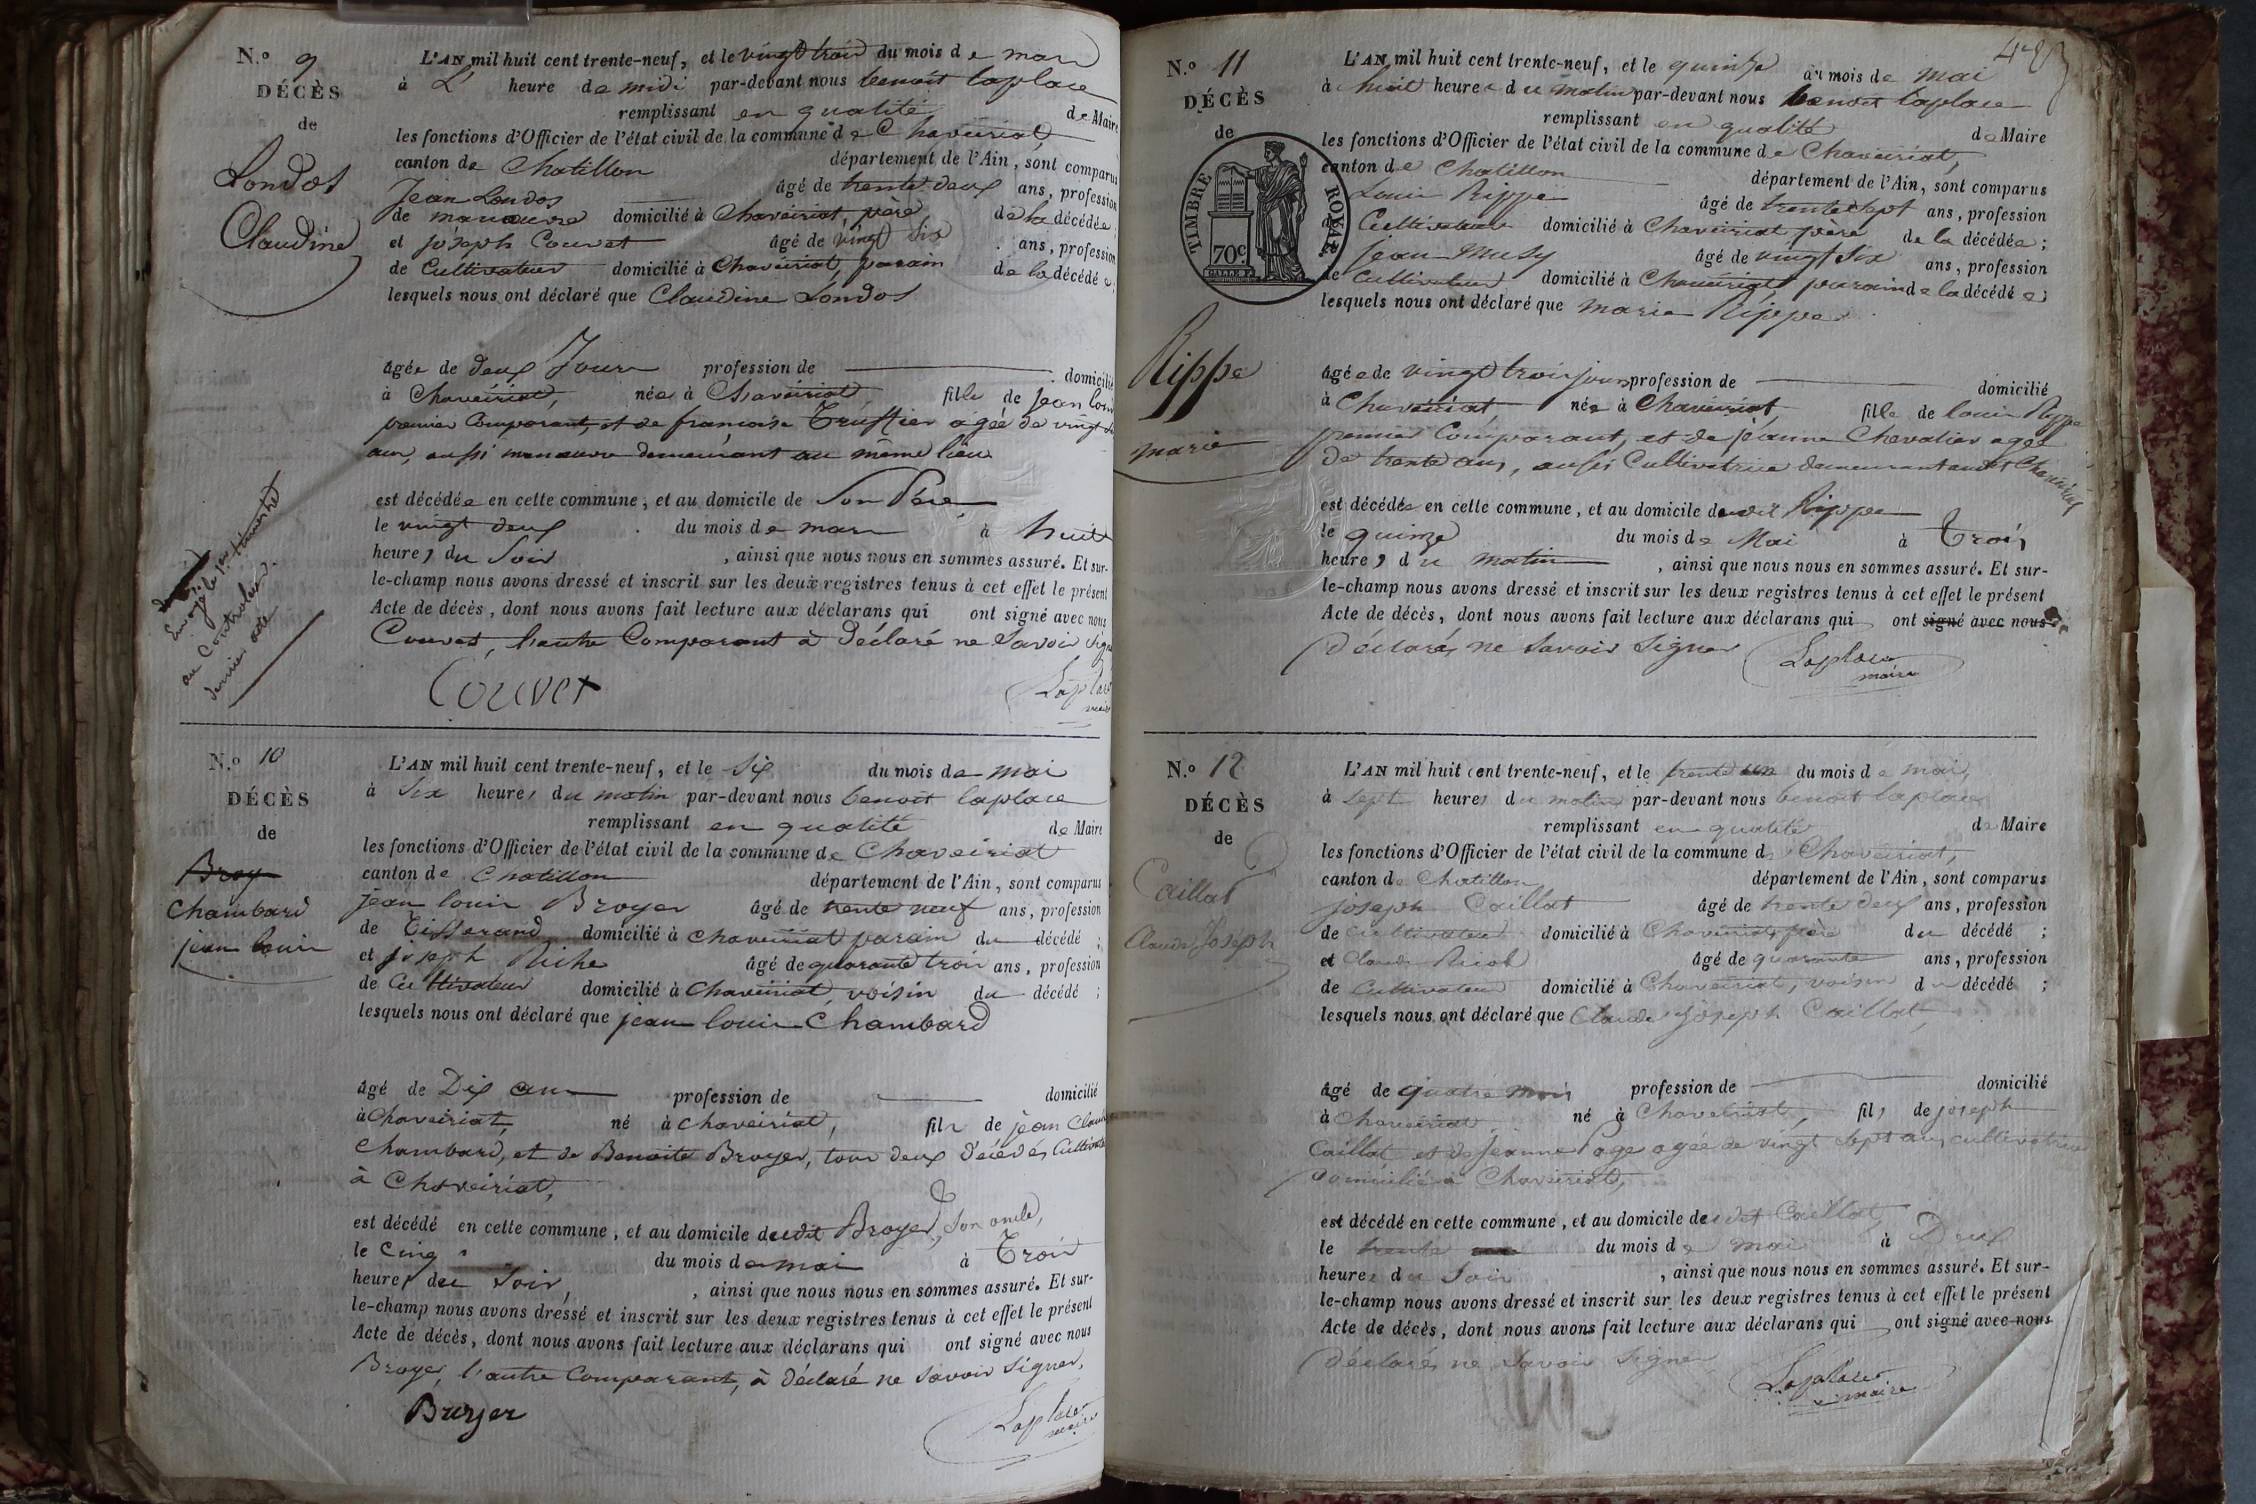 N.° 9
DÉCÈS
de
Londos
Claudine
L'AN mil huit cent trente-neuf, et le vingt trois du mois de mars
à L' heure de midi par-devant nous benoit laplace
remplissant en qualité de Maire
les fonctions d'Officier de l'état civil de la commune de Chaveiriat,
canton de Chatillon département de l'Ain, sont comparus
Jean Londos âgé de trente deux ans, profession
de manœuvre domicilié à Chaveiriat, père de la décédée;
et joseph Couvet âgé de vingt six ans, profession
de Cultivateur domicilié à Chaveiriat, parain de la décédée;
lesquels nous ont déclaré que Claudine Londos
âgée de deux Jours profession de domicilié
à Chaveiriat, née à Chaveiriat, fille de jean
premier Comparant, et de françoise Truffier agée de vingt
ans, aussi manœuvre demeurant au même lieu
est décédée en cette commune, et au domicile de Son Père,
le vingt deux du mois de mars à huit
heures du Soir, ainsi que nous nous en sommes assuré. Et sur-
le-champ nous avons dressé et inscrit sur les deux registres tenus à cet effet le présent
Acte de décès, dont nous avons fait lecture aux déclarans qui ont signé avec nous
Couvet, l'autre Comparant à déclaré ne Savoir Signer
Couvet
Laplace
maire
Envoyé le 1er trimestre
au Controleur.
dernier acte
N.° 10
DÉCÈS
de
Broy
Chambard
jean louis
L'AN mil huit cent trente-neuf, et le Six du mois de mai
à Six heures du matin par-devant nous benoit laplace
remplissant en qualité de Maire
les fonctions d'Officier de l'état civil de la commune de Chaveiriat
canton de Chatillon département de l'Ain, sont comparus
jean louis Broyer âgé de trente neuf ans, profession
de Tisserand domicilié à chaveiriat parain du décédé;
et joseph Riche âgé de quarante trois ans, profession
de Cultivateur domicilié à Chaveiriat, voisin du décédé;
lesquels nous ont déclaré que jean louis Chambard
âgé de Dix ans profession de domicilié
à Chaveiriat, né à chaveiriat, fils de jean Claude
Chambard, et de Benoite Broyer, tous deux décédés, Cultivateurs
à Chaveiriat,
est décédé en cette commune, et au domicile dudit Broyer, Son oncle,
le Cinq du mois de mai à Trois
heures du Soir, ainsi que nous nous en sommes assuré. Et sur-
le-champ nous avons dressé et inscrit sur les deux registres tenus à cet effet le présent
Acte de décès, dont nous avons fait lecture aux déclarans qui ont signé avec nous
Broyer, l'autre Comparant, à déclaré ne Savoir Signer,
Buryer
Laplace
maire
N.° 11
DÉCÈS
de
TIMBRE ROYAL
70c
Rippe
marie
L'AN mil huit cent trente-neuf, et le quinze du mois de mai
à huit heures du matin par-devant nous benoit laplace
remplissant en qualité de Maire
les fonctions d'Officier de l'état civil de la commune de Chaveiriat,
canton de Chatillon département de l'Ain, sont comparus
Louis Rippe âgé de trente Sept ans, profession
de Cultivateur domicilié à Chaveiriat père de la décédée;
jean Musy âgé de vingt Six ans, profession
de Cultivateur domicilié à Chaveiriat parain de la décédée;
lesquels nous ont déclaré que marie Rippe
âgée de vingt trois jours profession de domicilié
à Chaveiriat née à Chaveiriat, fille de louis Rippe
premier Comparant, et de jeanne Chevalier agée
de trente ans, aussi Cultivatrice demeurant audit Chaveiriat
est décédée en cette commune, et au domicile dudit Rippe
le quinze du mois de Mai à Trois
heures du matin, ainsi que nous nous en sommes assuré. Et sur-
le-champ nous avons dressé et inscrit sur les deux registres tenus à cet effet le présent
Acte de décès, dont nous avons fait lecture aux déclarans qui ont signé avec nous
déclarés ne Savoir Signer
Laplace
maire
N.° 12
DÉCÈS
de
Caillat
Claude Joseph
L'AN mil huit cent trente-neuf, et le trente un du mois de mai,
à Sept heures du matin par-devant nous benoit laplace
remplissant en qualité de Maire
les fonctions d'Officier de l'état civil de la commune de Chaveiriat,
canton de Chatillon département de l'Ain, sont comparus
joseph Caillat âgé de trente deux ans, profession
de Cultivateur domicilié à Chaveiriat, père du décédé;
et Claude âgé de quarante ans, profession
de Cultivateur domicilié à Chaveiriat, voisin du décédé;
lesquels nous ont déclaré que Claude joseph Caillat,
âgé de quatre mois profession de domicilié
à Chaveiriat, né à Chaveiriat, fils de joseph
Caillat et de jeanne Page agée de vingt Sept ans, cultivatrice
domicilié à Chaveiriat,
est décédé en cette commune, et au domicile dudit Caillat,
le trente du mois de mai à Deux
heures du Soir, ainsi que nous nous en sommes assuré. Et sur-
le-champ nous avons dressé et inscrit sur les deux registres tenus à cet effet le présent
Acte de décès, dont nous avons fait lecture aux déclarans qui ont signé avec nous
déclarés ne Savoir Signer
Laplace
maire